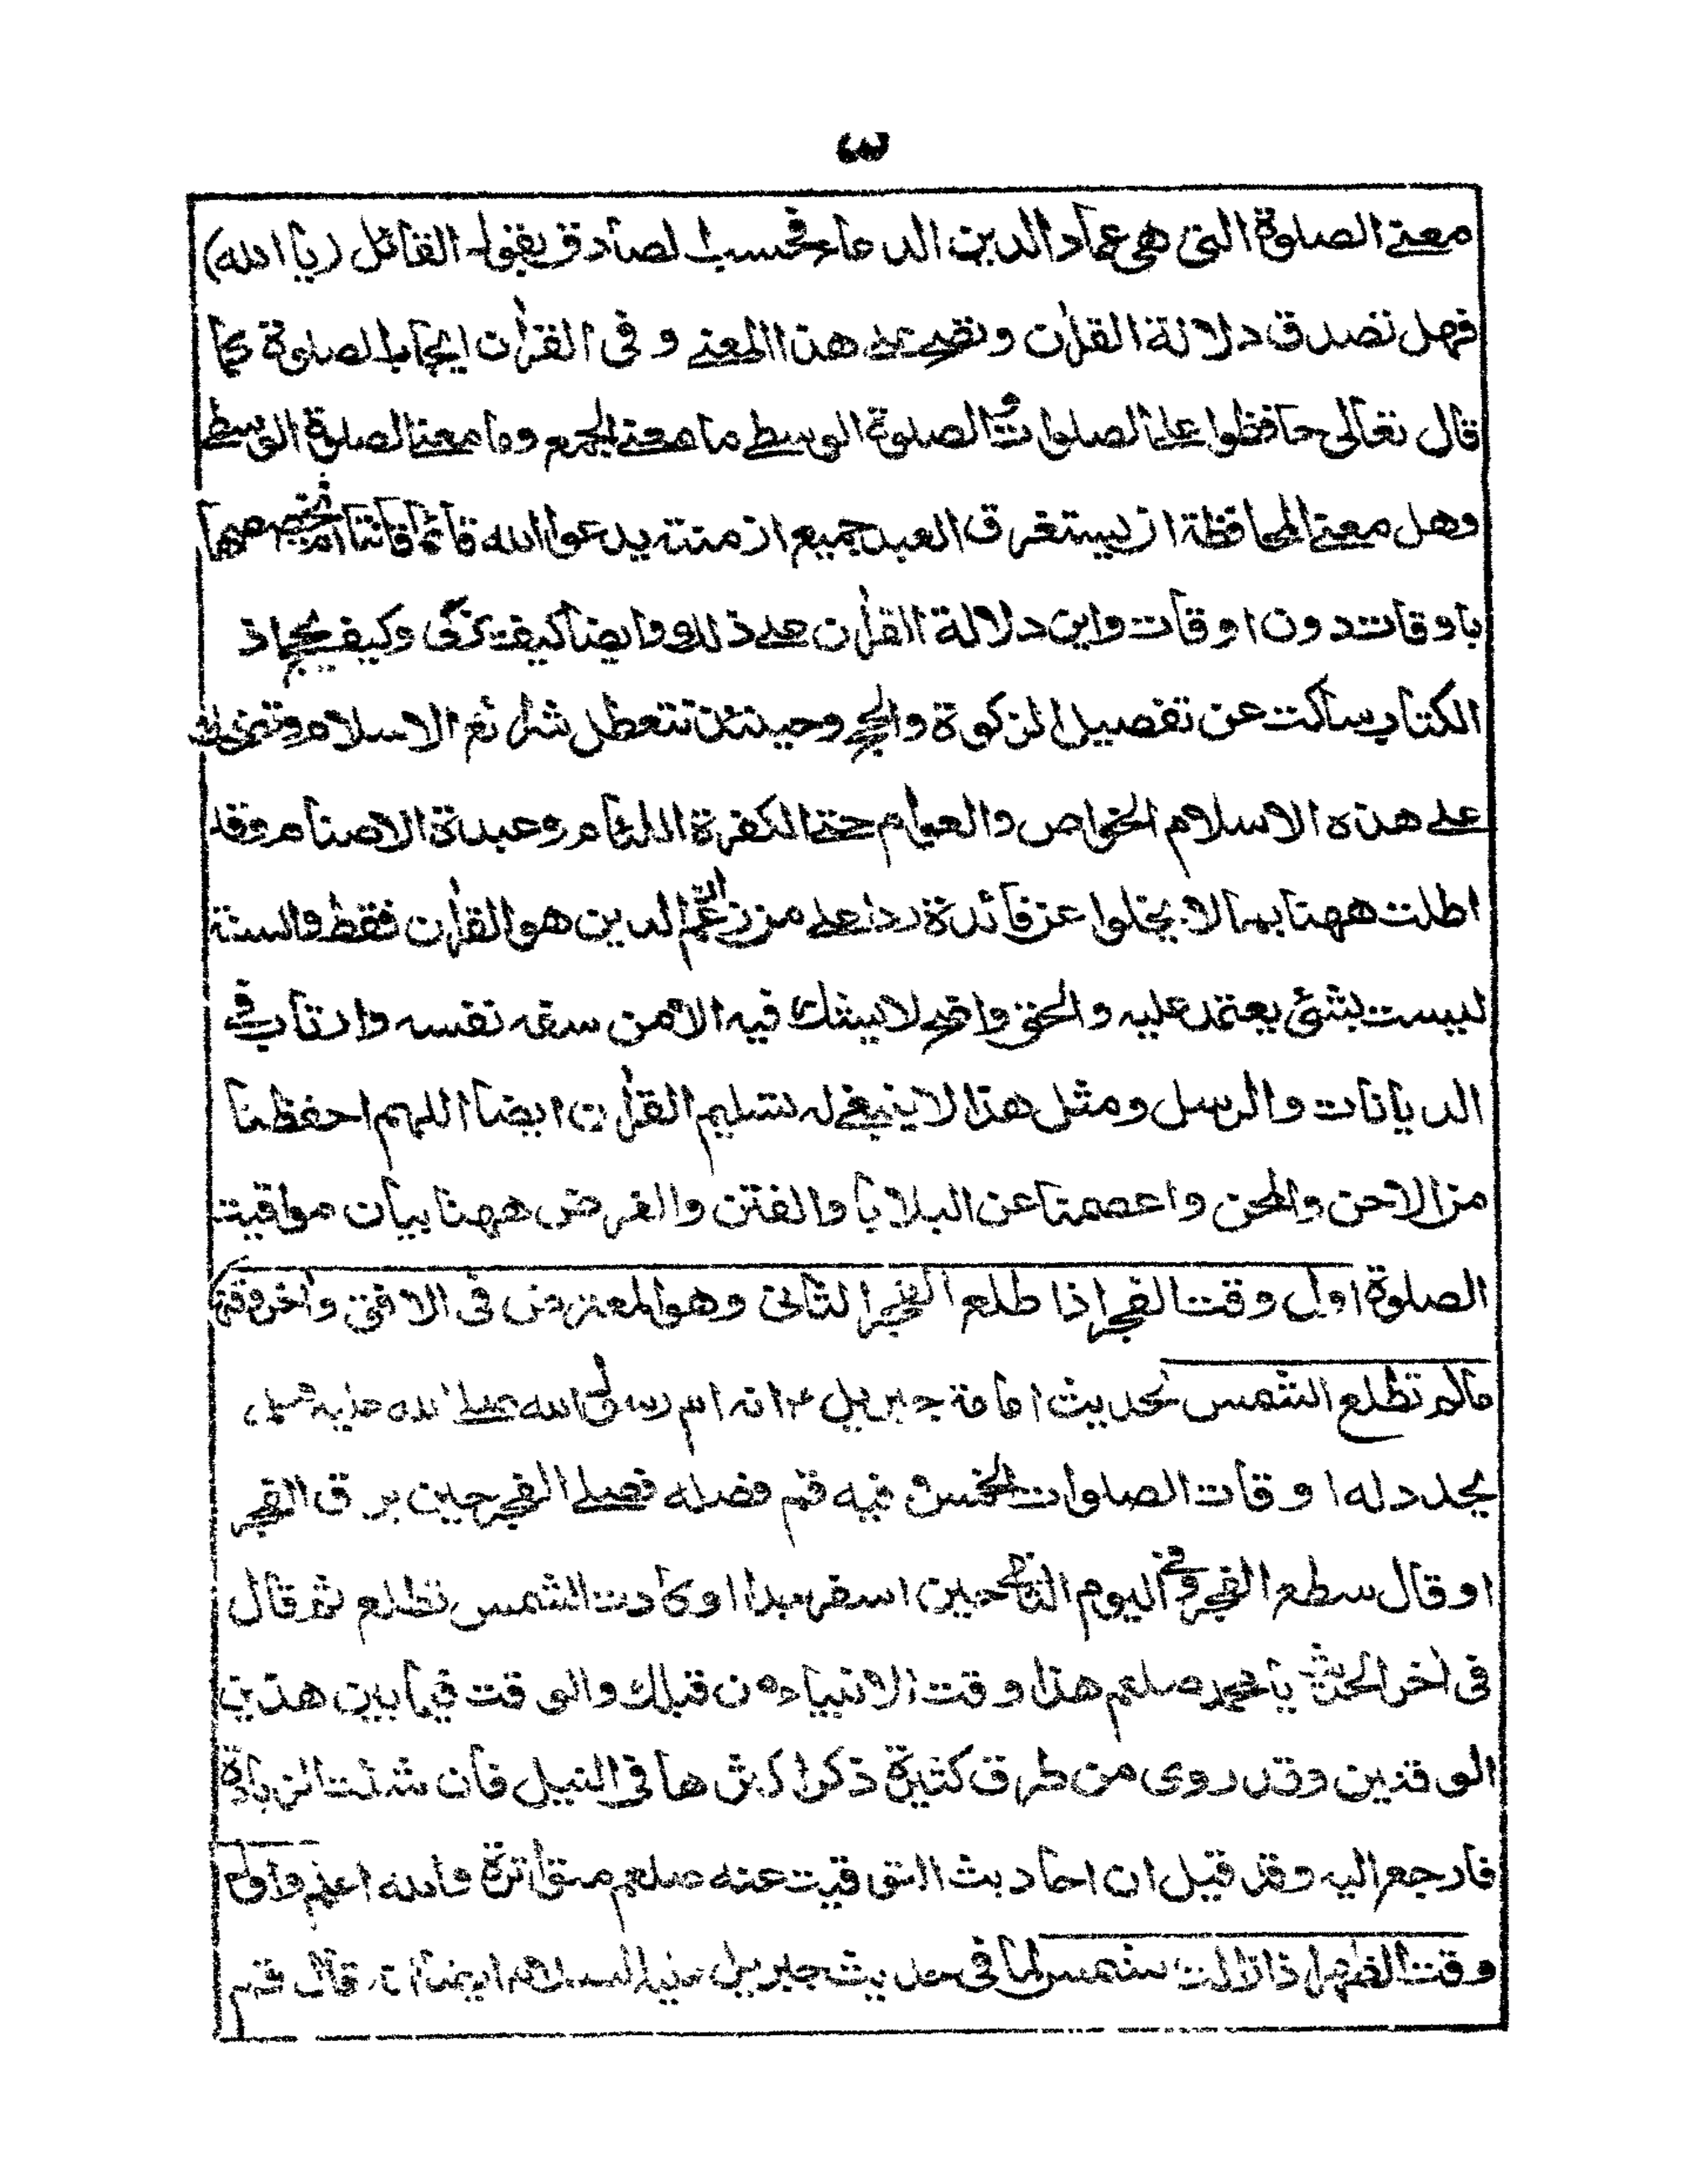 ٣
معنى الصلوة التى هى عماد الدين الدعاء فحسب لصادق بقول القائل (يا الله)
فهل تصدق دلالة القرأن ونصه على هذا المعنى وفى القرأن ايجاب الصلوة كما
قال تعالى حافظوا على الصلوات والصلوة الوسطى ما معنى الجمع وما معنى الصلوة الوسطى
وهل معنى المحافظة ان يستغرق العبد جميع ازمنته يدعوا الله قائما قانتا ام تخصيصها
باوقات دون اوقات واين دلالة القرأن على ذلك وايضا كيف تزكى وكيف يحج اذ
الكتاب ساكت عن تفصيل الزكوة والحج وحينئذ تتعطل شرائع الاسلام
على هذه الاسلام الخواص والعوام حتى الكفرة اللئام وعبدة الاصنام وقد
اطلت ههنا بما لا يخلوا عن فائدة ردا على من زعم ان الدين هو القرأن فقط والسنة
ليست بشئ يعتمد عليه والحق واضح لا يشك فيه الا من سفه نفسه وارتاب فى
الديانات والرسل ومثل هذا لا ينبغى له تسليم القرأن ايضا اللهم احفظنا
من الاحن والمحن واعصمنا عن البلايا والفتن والغرض ههنا بيان مواقيت
الصلوة اول وقت الفجر اذا طلع الفجر الثانى وهو المعترض فى الافق وأخر وقتها
مالم تطلع الشمس لحديث امامة جبريل ع انه ام رسول الله صلى الله عليه وسلم
يحدد له اوقات الصلوات الخمس فيه قم فصله فصلى الفجر حين برق الفجر
او قال سطع الفجر وفى اليوم الثانى حين اسفر جدا او كادت الشمس تطلع ثم قال
فى أخر الحديث يا محمد صلعم هذا وقت الانبياء من قبلك والوقت فيما بين هذين
الوقتين وقد روى من طرق كثيرة ذكر اكثرها فى النيل فان شئت الزيادة
فارجع اليه وقد قيل ان احاديث التوقيت عنه صلعم متواترة والله اعلم واول
وقت الظهر اذا زالت شمس لما فى حديث جبريل عليه السلام ايضا انه قال قم